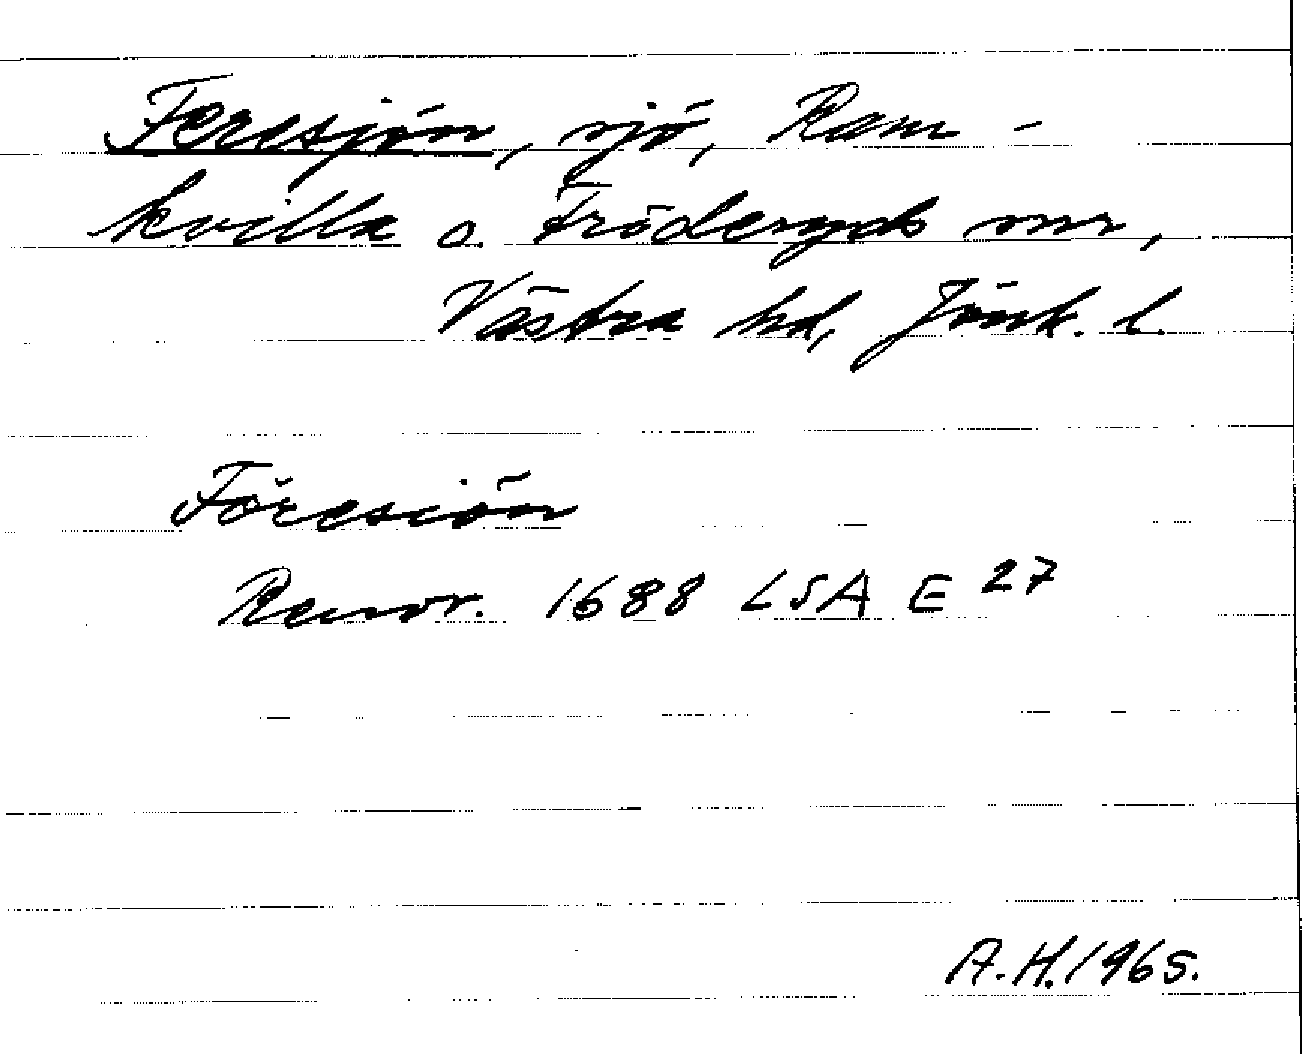 Feresjön, sjö, Ram-
kvilla o. Fröderyds snr,
Västra hd, Jönk. l.
Föresiön
Ransr. 1688 LSA E 27
A.H. 1965.